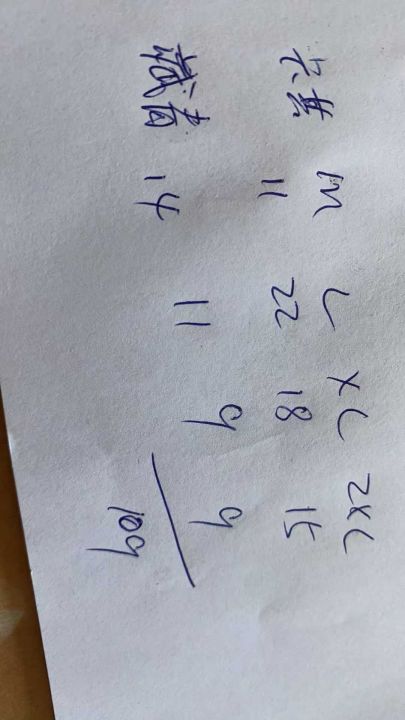 M L XL 2XL
卡其 11 22 18 15
藏青 14 11 9 9
109